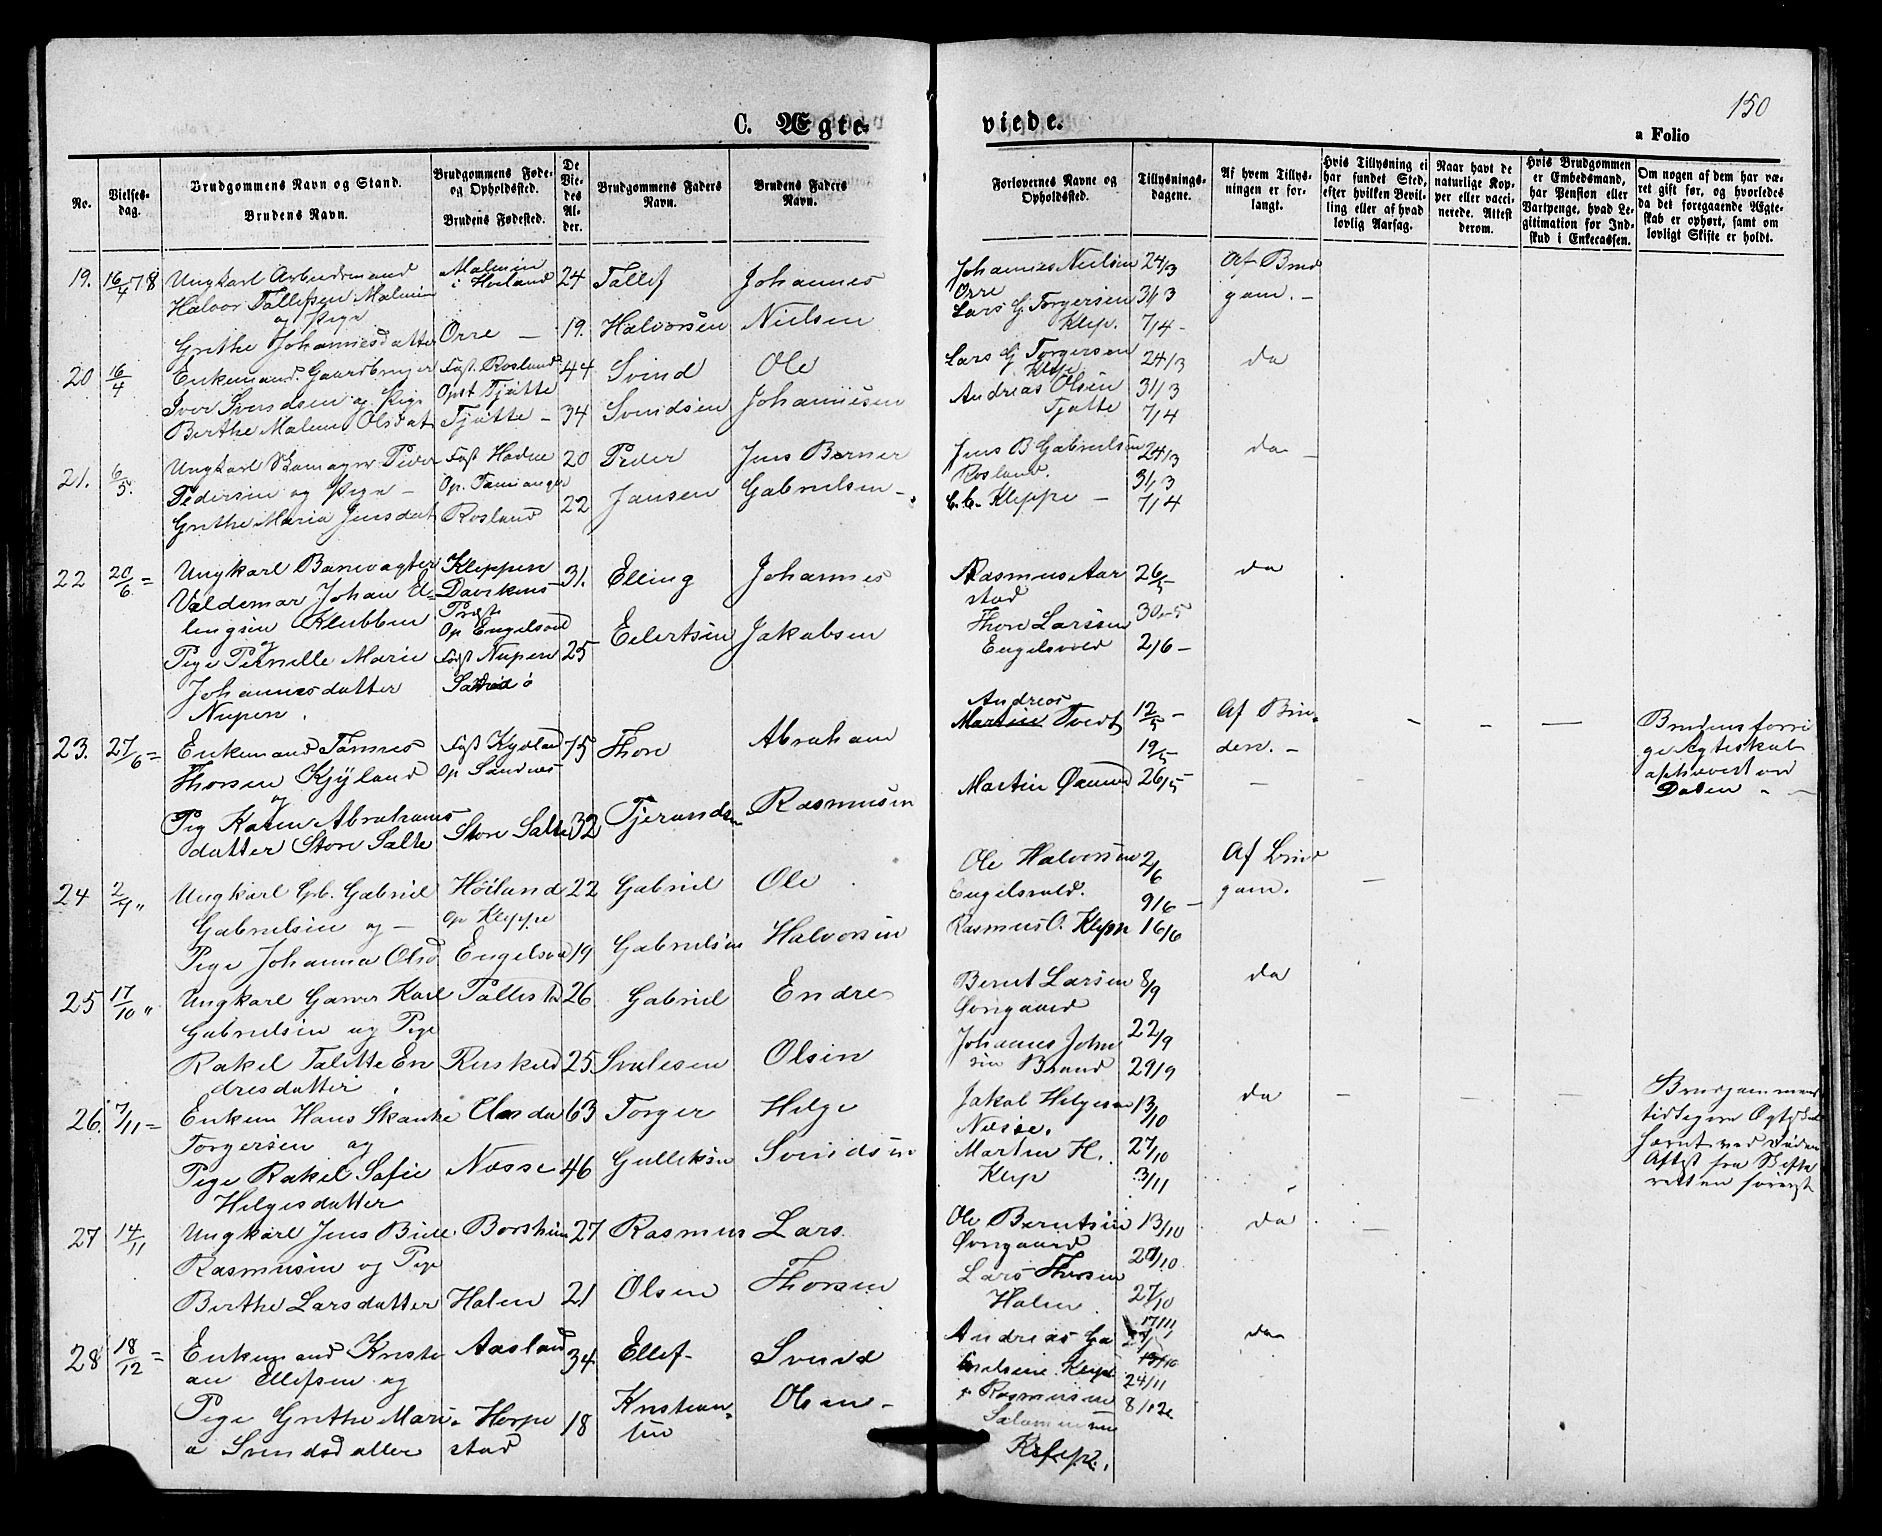 150
C. Ægte-
viede.
a Folio
No.
Vielses-
dag.
Brudgommens Navn og Stand.
Brudens Navn.
Brudgommens Føde-
og Opholdssted.
Brudens Fødested.
De
Vie-
des
Al-
der.
Brudgommens Faders
Navn.
Brudens Faders
Navn.
Forlovernes Navne og
Opholdssted.
Tillysnings-
dagene.
Af hvem Tillys-
ningen er for-
langt.
Hvis Tillysning ei
har fundet Sted,
efter hvilken Bevil-
ling eller af hvad
lovlig Aarsag.
Naar havt de
naturlige Kop-
per eller vacci-
nerede. Attest
derom.
Hvis Brudgommen
er Embedsmand,
har Pension eller
Vartpenge, hvad Le-
gitimation for Ind-
skud i Enkecassen.
Om nogen af dem har væ-
ret gift før, og hvorledes
da det foregaaende Ægte-
skab er ophørt, samt om
lovligt Skifte er holdt.
19. 16/4 78 Ungkarl Arbeidsmand
Halvor Tallefsen Malmin
og Pige
Grethe Johannesdatter
Malmin
i Høiland
Orre —
24
19.
Tallef
Halvorsen
Johannes
Nielsen
Johannes Nielsen
Orre
Lars G. Torgersen
Klep.
24/3
31/3
7/4 -
Af Brud
gom. —
20 16/4 Enkemand Gaardbruger
Iver Svendsen og Pige
Berthe Malene Olsdat
Født Rosland
Opst Tjøtte
Tjøtte —
44
34
Svend
Svendsen
Ole
Johannesen
Lars G Torgersen
Klep
Andreas Olsen
Tjøtte
24/3
31/3
7/4
da
21. 6/5. Ungkarl Skomager Peder
Pedersen og Pige —
Grethe Maria Jensdat
Op. Tananger
Rosland
20
22
Peder
Jansen
Jens Berner
Gabrielsen
Jens B Gabrielsen
Rosland.
Kleppe —
24/3
31/3
7/4
da —
22 20/6 = Ungkarl Banevogter
Valdemar Johan El-
lingsen Klubben
og
Pige Pernille Marie
Johannesdatter
Nupen.
Op Engelsvold
Født Nupen
31.
25
Elling
Eilertsen
Johannes
Jakobsen
Rasmus Aar
stad
Thore Larssen
Engelsvold
26/5
30-5
2/6 —
da
23. 27/6 = Enkemand Tønnes
Thorsen Kjyland
og
Pig Karen Abrahams
datter Store Salte
Født Kydland
Op Sandnes
Store Salte
75
32
Thore
Tjerandsen
Abraham
Rasmusen
Andreas
Martin Tvedt
Martin Ømund
12/5 —
19/5
26/5 —
Af Bru-
den. —
Brudens forri
ge Ægteskab
ophævet ved
Døden
24 2/7 " Ungkarl Grb. Gabriel
Gabrielsen og —
Pige Johanna Olsd
Høiland
op Kleppe
Engelsvol
22
19
Gabriel
Gabrielsen
Ole
Halvorsen
Ole Halvorsen
Engelsvold.
Rasmus O. Klepp
2/6
9/6 —
16/6
Af Brud
gom.
25 17/10 " Ungkarl Garver Karl
Gabrielsen og Pige
Rakel Talette En
dresdatter
Reskeld
26
25
Gabriel
Svalesen
Endre
Olsen
Bernt Larsen
Øvrgaard
Johannes John
sen Braud
8/9
22/9
29/9
da
26. 7/11 = Enkem Hans Skanke
Torgersen og
Pige Rakel Sofie
Helgesdatter
Næsse
63
46
Torger
Gulleksen
Helge
Svendsen
Jakob Helgesen
Næsse.
Martin H.
Klep
13/10
27/10
3/11
da
Brudgommens
tidligere Ægteskab
hævet ved Døden
Attest fra Skifte
retten forevist
27 14/11 Ungkarl Jens Bue
Rasmusen og Pige
Berthe Larsdatter
Borsheim
Holen
27
21
Rasmus
Olsen
Lars
Thorsen
Ole Berntsen
Øvrgaard
Lars Thorsen
Holen
13/10
20/10
27/10
da
28 18/12 Enkemand Kristi
an Ellefsen og
Pige Grethe Mari
a Svendsdatter
Aasland
Horpe
stad
34
18
Ellef
Kristian-
sen
Svend
Olsen —
Andreas Ga
brielsen Klep
Rasmusen
Salomonsen
Klep.
17/11
24/11
8/12
da